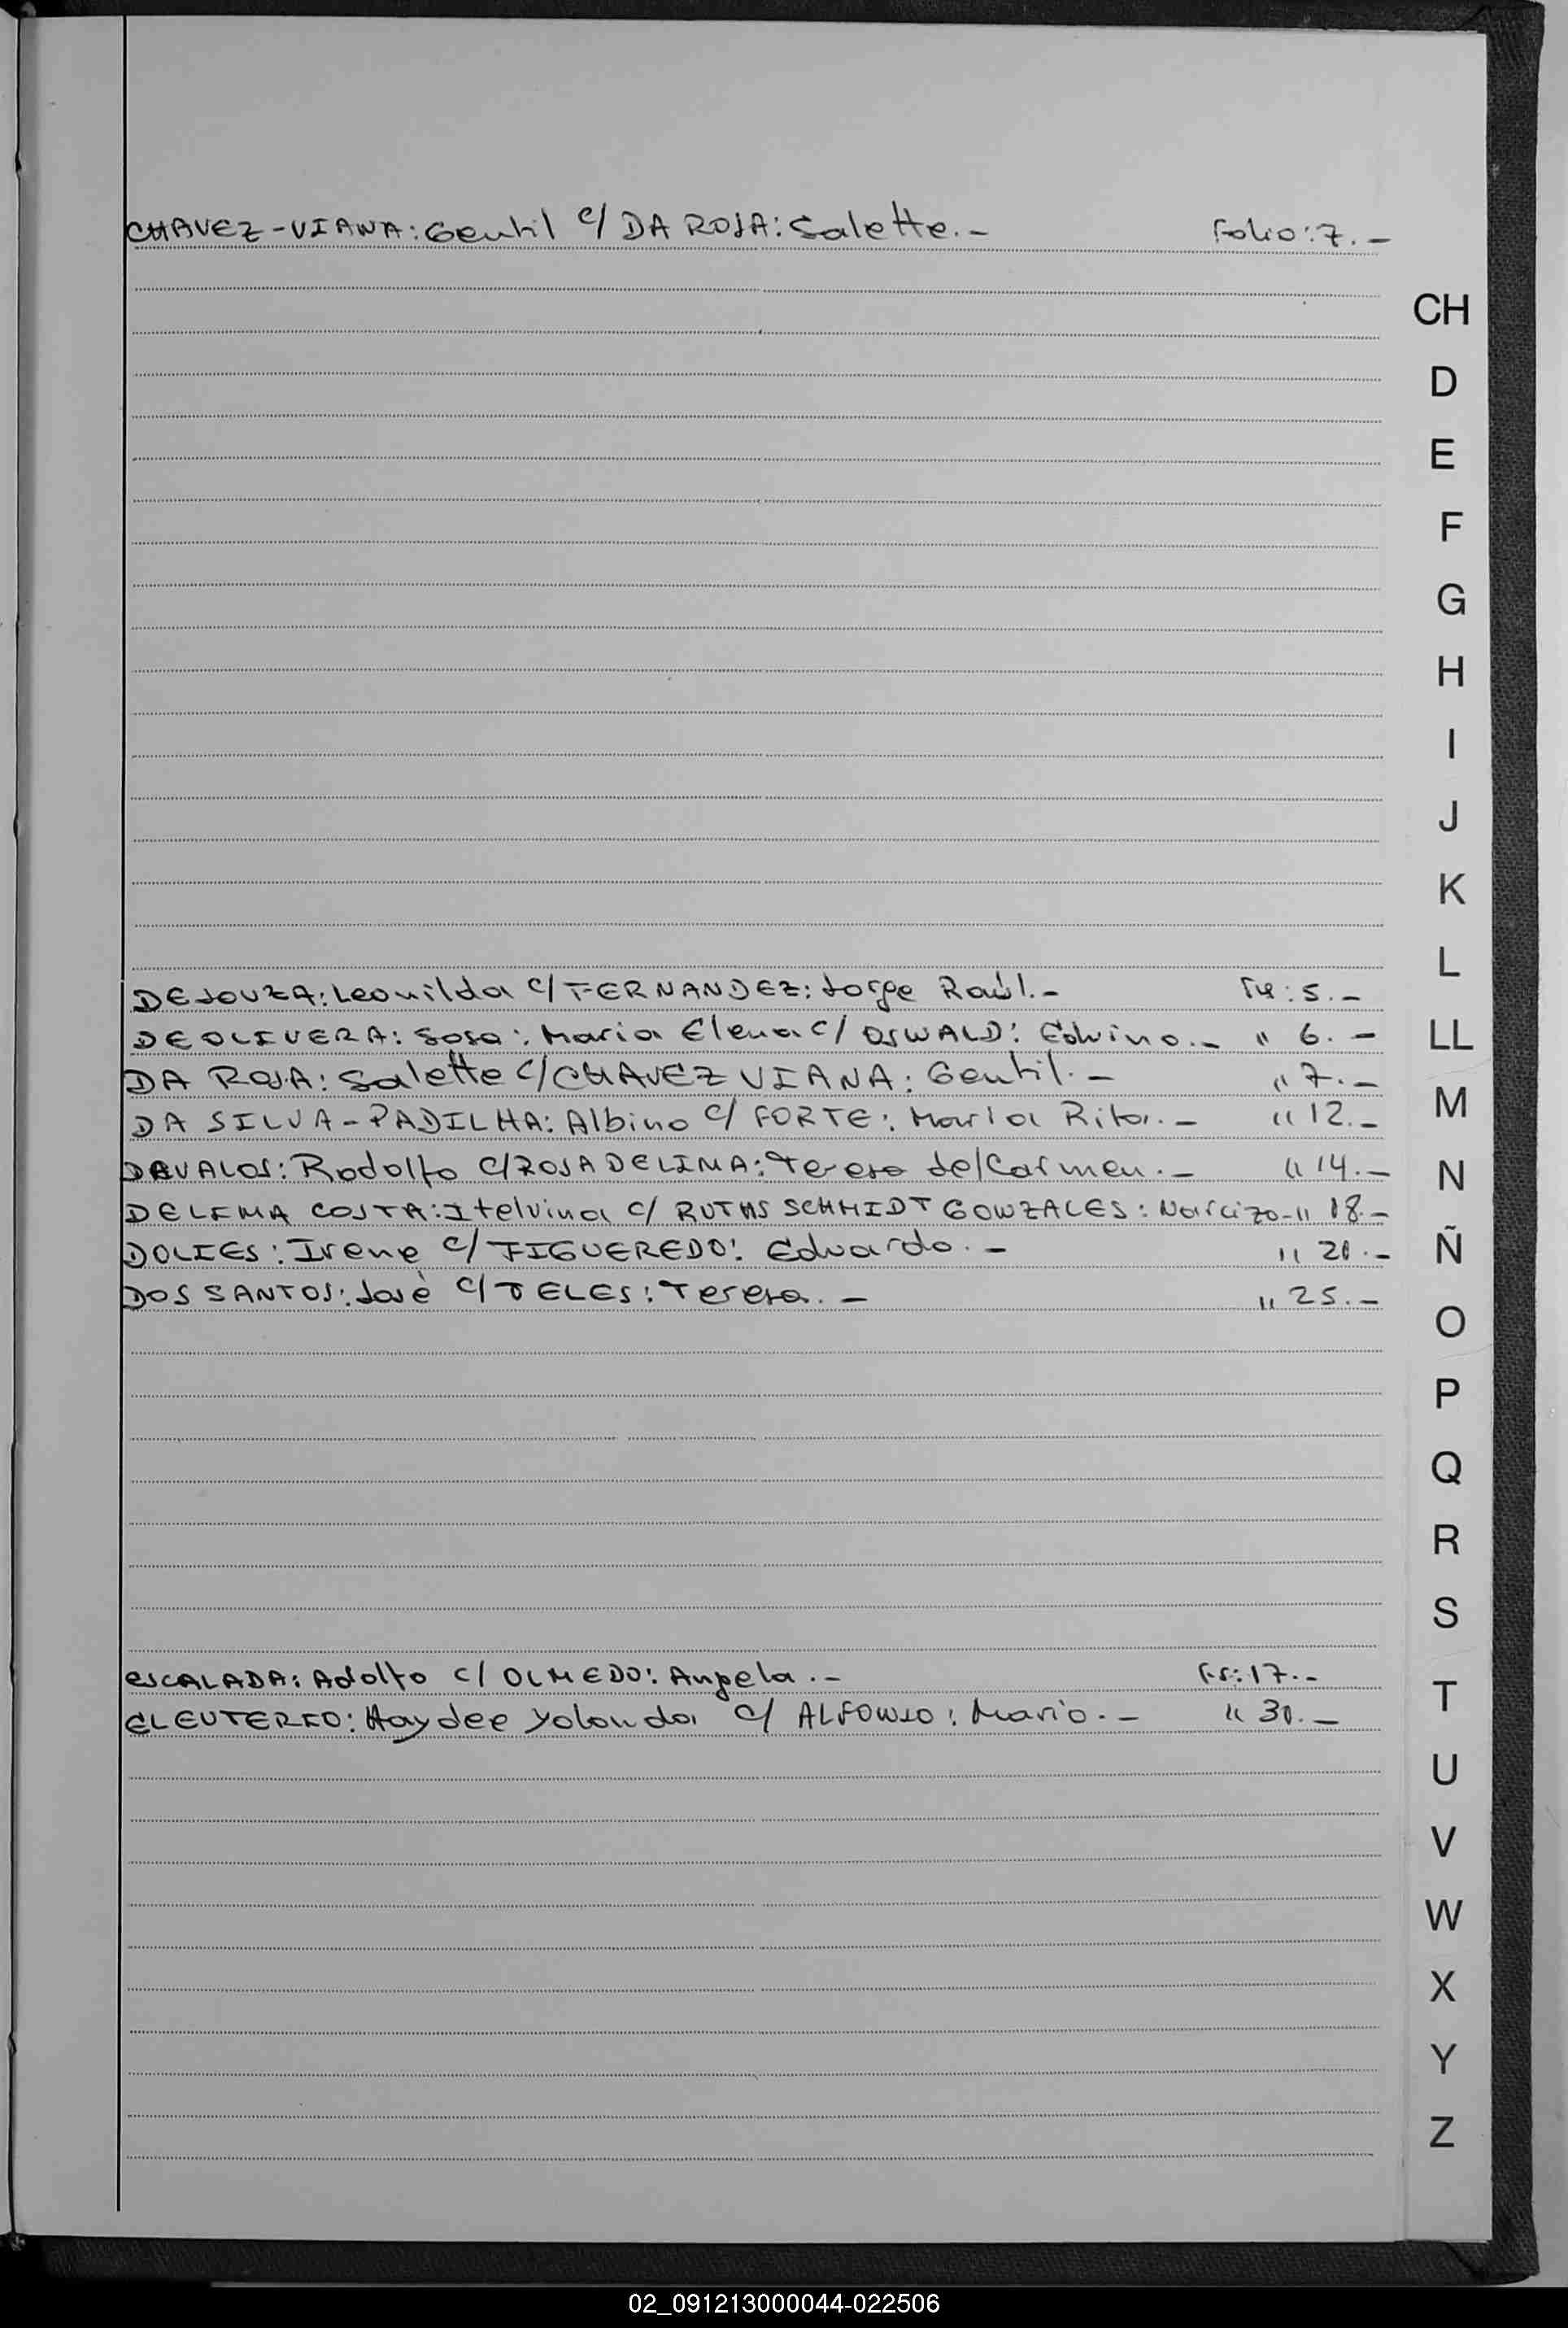 CHAVEZ-VIANA: Gentil c/ DA ROSA: Salette.- Folio: 7.-
CH
D
E
F
G
H
I
J
K
L
DESOUZA: Leonilda c/ FERNANDEZ: Jorge Raúl.- : 5.-
DEOLIVERA: Sosa: Maria Elena c/ OSWALD: Edvino.- " 6.-
LL
DA ROSA: Salette c/ CHAVEZ VIANA: Gentil.- " 7.-
M
DA SILVA-PADILHA: Albino c/ FORTE: Maria Rita.- " 12.-
DAVALOS: Rodolfo c/ ROSA DELIMA: Teresa del Carmen.- " 14.-
N
DELIMA COSTA: Itelvina c/ RUTHS SCHMIDT GONZALES: Narcizo- " 18.-
DOLIES: Irene c/ FIGUEREDO: Eduardo.- " 20.-
Ñ
DOS SANTOS: José c/ TELES: Teresa.- " 25.-
O
P
Q
R
S
ESCALADA: Adolfo c/ OLMEDO: Angela.- : 17.-
T
ELEUTERIO: Haydee Yolanda c/ ALFONSO: Mario.- " 30.-
U
V
W
X
Y
Z
02_091213000044-022506